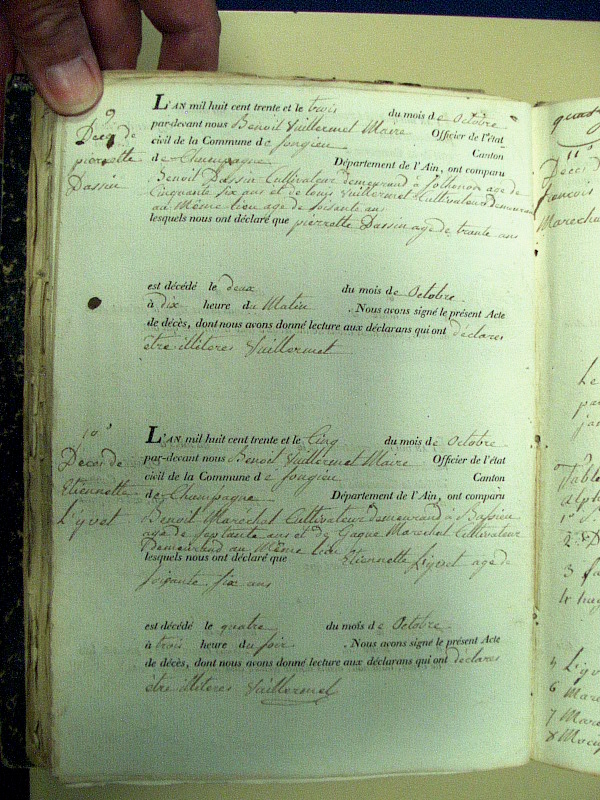 9
Déces de
pierrette
Dassin
L'AN mil huit cent trente et le trois du mois de Octobre
par-devant nous Benoit Vuillermet Maire Officier de l'état
civil de la Commune de Songieu Canton
de Champagne Département de l'Ain, ont comparu
Benoit Dassin Cultivateur demeurand à Sothonod age de
Cinquante six ans et de louis Vuillermet Cultivateur demeurand
au Même lieu age de soisante ans
lesquels nous ont déclaré que pierrette Dassin age de trante ans
est décédé le deux du mois de Octobre
à dix heure du Matin . Nous avons signé le présent Acte
de décès, dont nous avons donné lecture aux déclarans qui ont déclares
être illiteres Vuillermet
10
Déces de
Etiennette
Liyvet
L'AN mil huit cent trente et le Cinq du mois de Octobre
par-devant nous Benoit Vuillermet Maire Officier de l'état
civil de la Commune de Songieu Canton
de Champagne Département de l'Ain, ont comparu
Benoit Maréchal Cultivateur demeurand à Bassieu
age de septante ans et de Maréchal Cultivateur
demeurand au Même lieu
lesquels nous ont déclaré que Etiennette Liyvet age de
soisante six ans
est décédé le quatre du mois de Octobre
à trois heure du soir . Nous avons signé le présent Acte
de décès, dont nous avons donné lecture aux déclarans qui ont déclares
être illiteres Vuillermet
11
Déces d
francois
Marechal
Le
par
1
2
3
4
5 Liyv
6 Mare
7 Mare
8